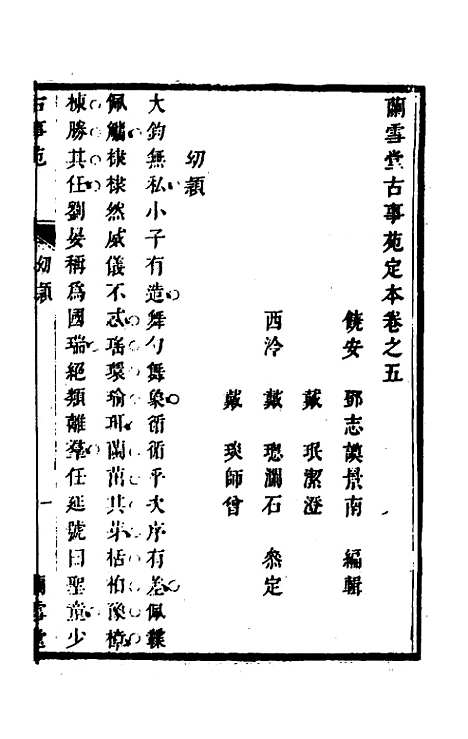 蘭雪堂古事苑定本卷之五
饒安　鄧志謨景南　編輯
戴　珉潔澄
西泠　戴　璁瀾石　叅定
戴　琰師曾
幼穎
大鈞無私小子有造舞勺舞象衎衎乎大序有差佩韘
佩觿棣棣然威儀不忒瑤環瑜珥蘭茁其芽栝柏豫樟
棟勝其任劉晏稱為國瑞絕類離羣任延號曰聖童少
古事苑
幼穎
一
蘭雪堂